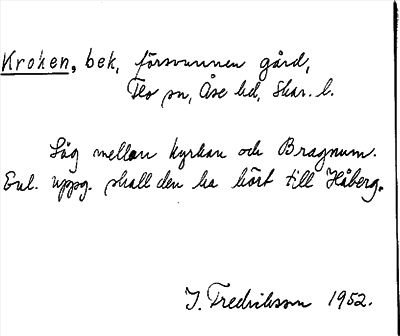 Kroken, bek, försvunnen gård,
Flo sn, Åse hd, Skar. l.
Låg mellan kyrkan och Bragnum.
Enl. uppg. skall den ha hört till Håberg.
I. Fredriksson 1952.